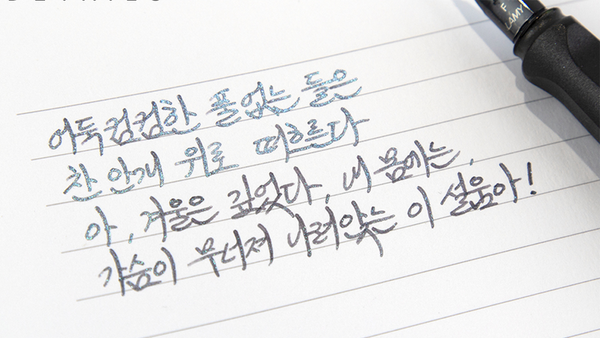 어둑컴컴한 풀 없는 들은
찬 안개 위로 떠흐르다
아, 겨울은 깊었다, 내 몸에는,
가슴이 무너져 나려앉는 이 설움아!
F
LAMY